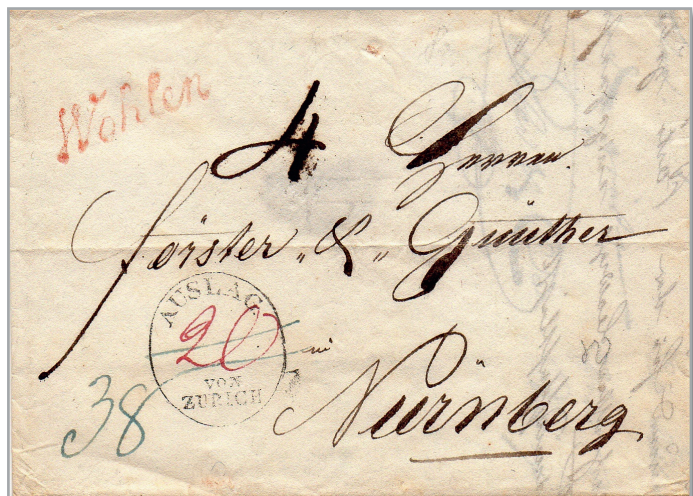 Wohlen
4
Herren
Förster & Günther
AUSLAG
20
VON
ZURICH
in
Nürnberg
38